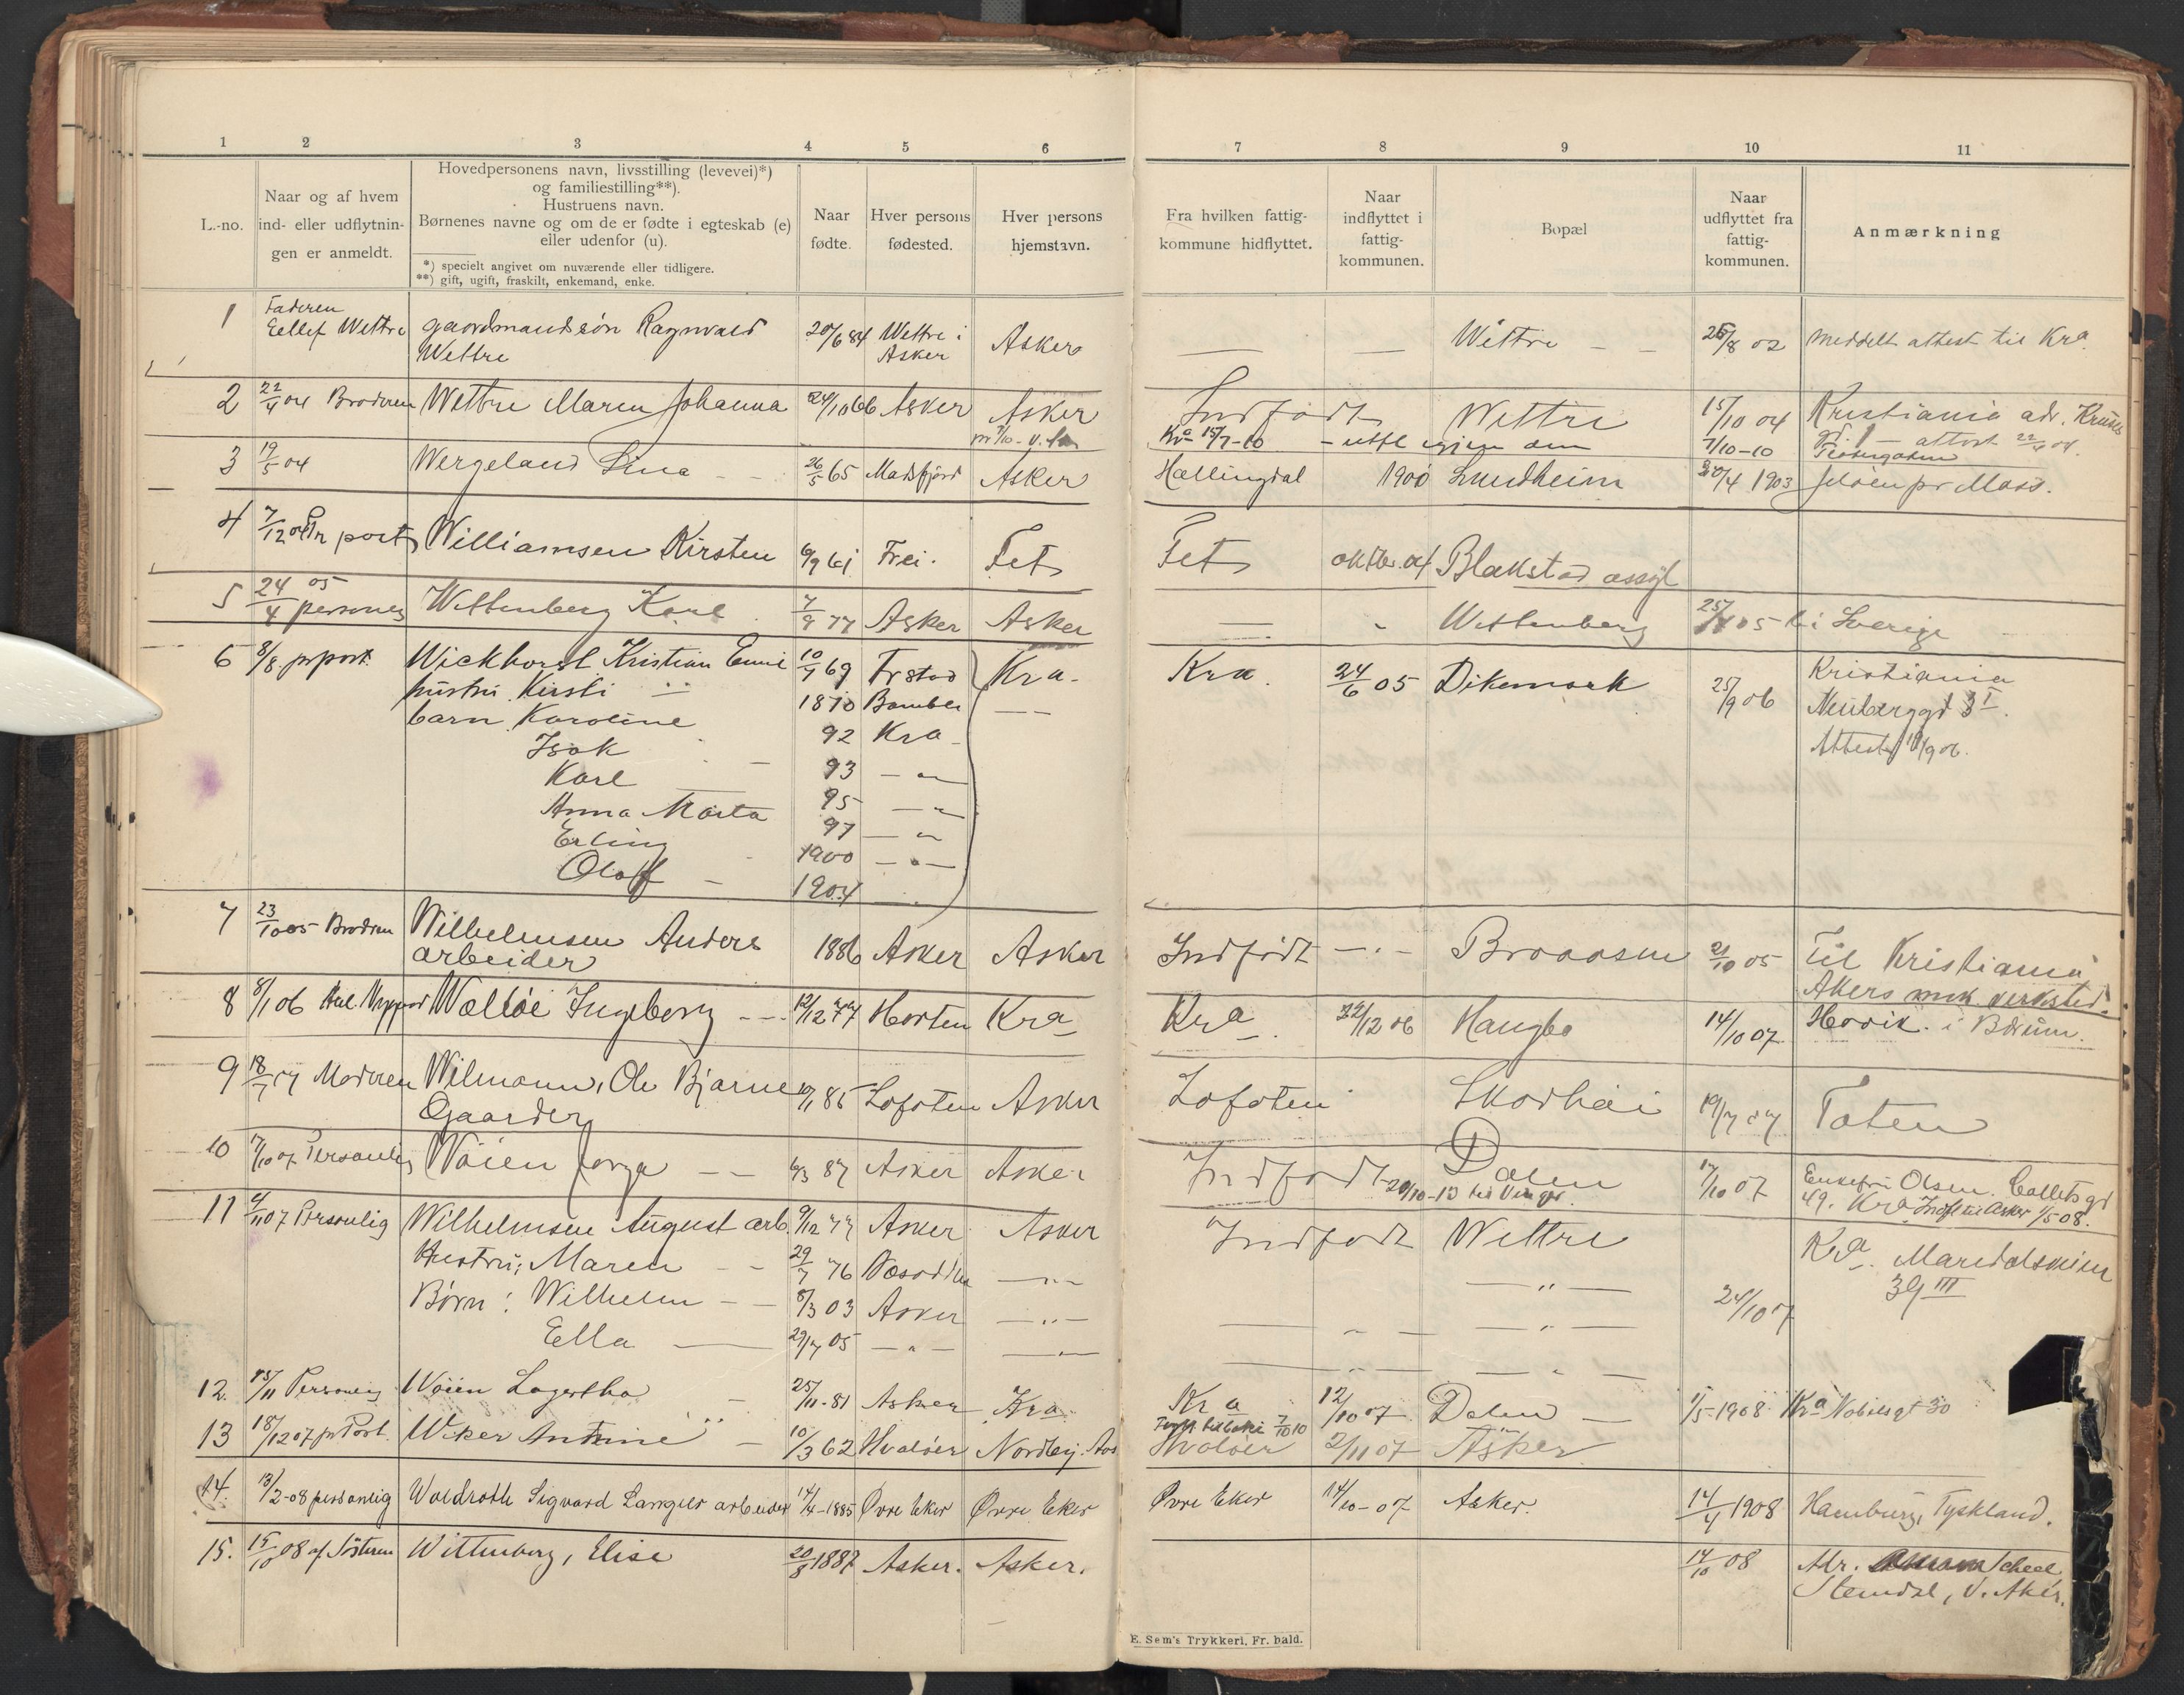 1 2 3 4 5 6 7 8 9 10 11
L.-no.
Naar og af hvem
ind- eller udflytnin-
gen er anmeldt.
Hovedpersonens navn, livsstilling (levevei)*)
og familiestilling**).
Hustruens navn.
Børnenes navne og om de er fødte i egteskab (e)
eller udenfor (u).
*) specielt angivet om nuværende eller tidligere.
**) gift, ugift, fraskilt, enkemand, enke.
Naar
fødte.
Hver persons
fødested.
Hver persons
hjemstavn.
Fra hvilken fattig-
kommune hidflyttet.
Naar
indflyttet i
fattig-
kommunen.
Bopæl
Naar
udflyttet fra
fattig-
kommunen.
Anmærkning
1 Faderen
Eellef Wettre gaardmandssøn Ragnvald 20/6 84 Wettre i Asker — — Wettre — — 26/8 02 Meddelt attest til Kra.
Wettre Asker
2 22/4 04 Broderen Wettre Maren Johanna 24/10 66 Asker Asker Indfødt Wettre 15/10 04 Kristiania adr. Kruses
Kra 15/7-10 - utfl igjen den 7/10-10 gt. 1 - attest 22/4 04.
3 19/5 04 Wergeland Lina — — 26/5 65 Asker Hallingdal 1900 Lundheim 30/4 1903 Jeløen pr Moss.
4 7/12 04 pr post Williamsen Kirsten 6/9 61 Frei. Fet Fet oktbr. 04 Blakstad assyl
5 24/4 05 personlig Wettenberg Karl 7/9 77 Asker Asker — " Wettenberg 25/4 05 til Sverige
6 8/8. pr post. Wickhorst Kristian 10/7 69 Frstad Kra. Kra. 24/6 05 Dikemark 25/9 06 Kristiania
hustru Kirsti 1870 Bamble — Neuberggt 3 I.
barn Karoline 92 Kra Attest 19/9 06.
Isak — 93 — " —
Karl — 95 — " —
Anna Marta 97 — " —
Erling 1900 — " —
Olaf — 1904
7 23/10 05 Brodren Wilhelmsen Anders 1886 Asker Asker Indfødt — " — Braaasen 21/10 05 Til Kristiania
arbeider Akers mek. verksted.
8 8/1 06 Wallöe Ingeborg — — 12/12 77 Horten Kra Kra. 22/12 06 Haugbo 14/10 07 Hövik i Bærum.
9 18/7 07 Moderen Wilmann, Ole Bjarne 85 Lofoten Asker Lofoten Skorhei 19/7 07 Toten
Gaarder
10 7/10 07 Personlig Wöien Borga — — 6/3 87 Asker Asker Indfødt Dalen 17/10 07 Enkefru Olsen. Colletsgt
20/10-13 til Vinger. 49. Kra Indfl til Asker 1/5 08.
11 4/11 07 Personlig Wilhelmsen August arb. 9/12 77 Asker Asker Indfødt Wettre Kra. Maridalsveien
Hustru; Maren — — 29/7 76 Næsodden — " — — " — 39 III
Børn: Wilhelm — — 8/3 03 Asker — " — — " — — " — 24/10 07
Ella — 29/7 05 — " — — " — — " — — " —
12. 13/11 Personlig Wöien Lagertha — 25/11-81 Asker Kra. Kra 12/10 07 Dalen — 1/5-1908 Kra Nobilsgt 30
13 18/12 07 pr Post. Wiker Antonie — 10/3 62 Hvaløer Nordby. Aas Hvaløer 2/11 07 Asker
14. 13/2-08 personlig Waldroth Sigvard Langlet arbeider 14/4-1885 Øvre Eker Øvre Eker Øvre Eker 14/10-07 Asker. 14/4 1908 Hamburg, Tyskland.
15. 15/10 08 af Søsteren Wittenberg, Elise 20/8 1887 Asker. Asker. 14/10 08 Adr. Scheel
Stendal, V. Aker.
E. Sem's Trykkeri, Fr. hald.